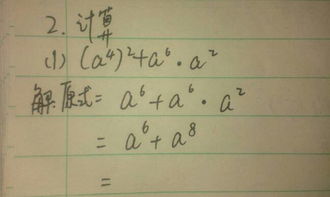 2. 计算
(1) (a⁴)²+a⁶·a²
解原式= a⁶+a⁶·a²
= a⁶+a⁸
=